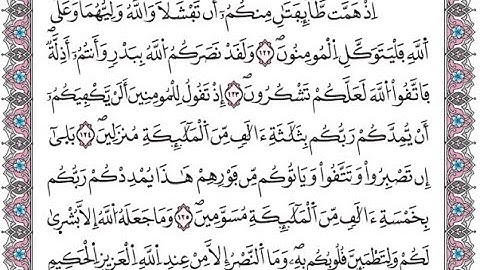 إِذْ هَمَّت طَّآئِفَتَٰنِ مِنكُمُۥٓ أَن تَفْشَلَا وَاللَّهُ وَلِيُّهُمَا وَعَلَى
اَللَّهِ فَلْيَتَوَكَّلِ اِلْمُومِنُونَ ١٢٢ وَلَقَدْ نَصَرَكُمُ اُللَّهُ بِبَدْرٖ وَأَنتُمُۥٓ أَذِلَّةٞ
فَاتَّقُوا اُللَّهَ لَعَلَّكُمْ تَشْكُرُونَ ١٢٣ إِذْ تَقُولُ لِلْمُومِنِينَ أَلَنْ يَّكْفِيَكُمُۥٓ
أَنْ يُّمِدَّكُمْ رَبُّكُم بِثَلَٰثَةِ ءَالَٰفٖ مِّنَ اَلْمَلَٰٓئِكَةِ مُنزَلِينَ ١٢٤ بَلَىٰٓ
إِن تَصْبِرُواْ وَتَتَّقُواْ وَيَاتُوكُم مِّن فَوْرِهِمْ هَٰذَا يُمْدِدْكُمْ رَبُّكُم
بِخَمْسَةِ ءَالَٰفٖ مِّنَ اَلْمَلَٰٓئِكَةِ مُسَوَّمِينَ ١٢٥ وَمَا جَعَلَهُ اُللَّهُ إِلَّا بُشْرَىٰ
لَكُمْ وَلِتَطْمَئِنَّ قُلُوبُكُم بِهِۦ وَمَا اَلنَّصْرُ إِلَّا مِنْ عِندِ اِللَّهِ اِلْعَزِيزِ اِلْحَكِيمِ